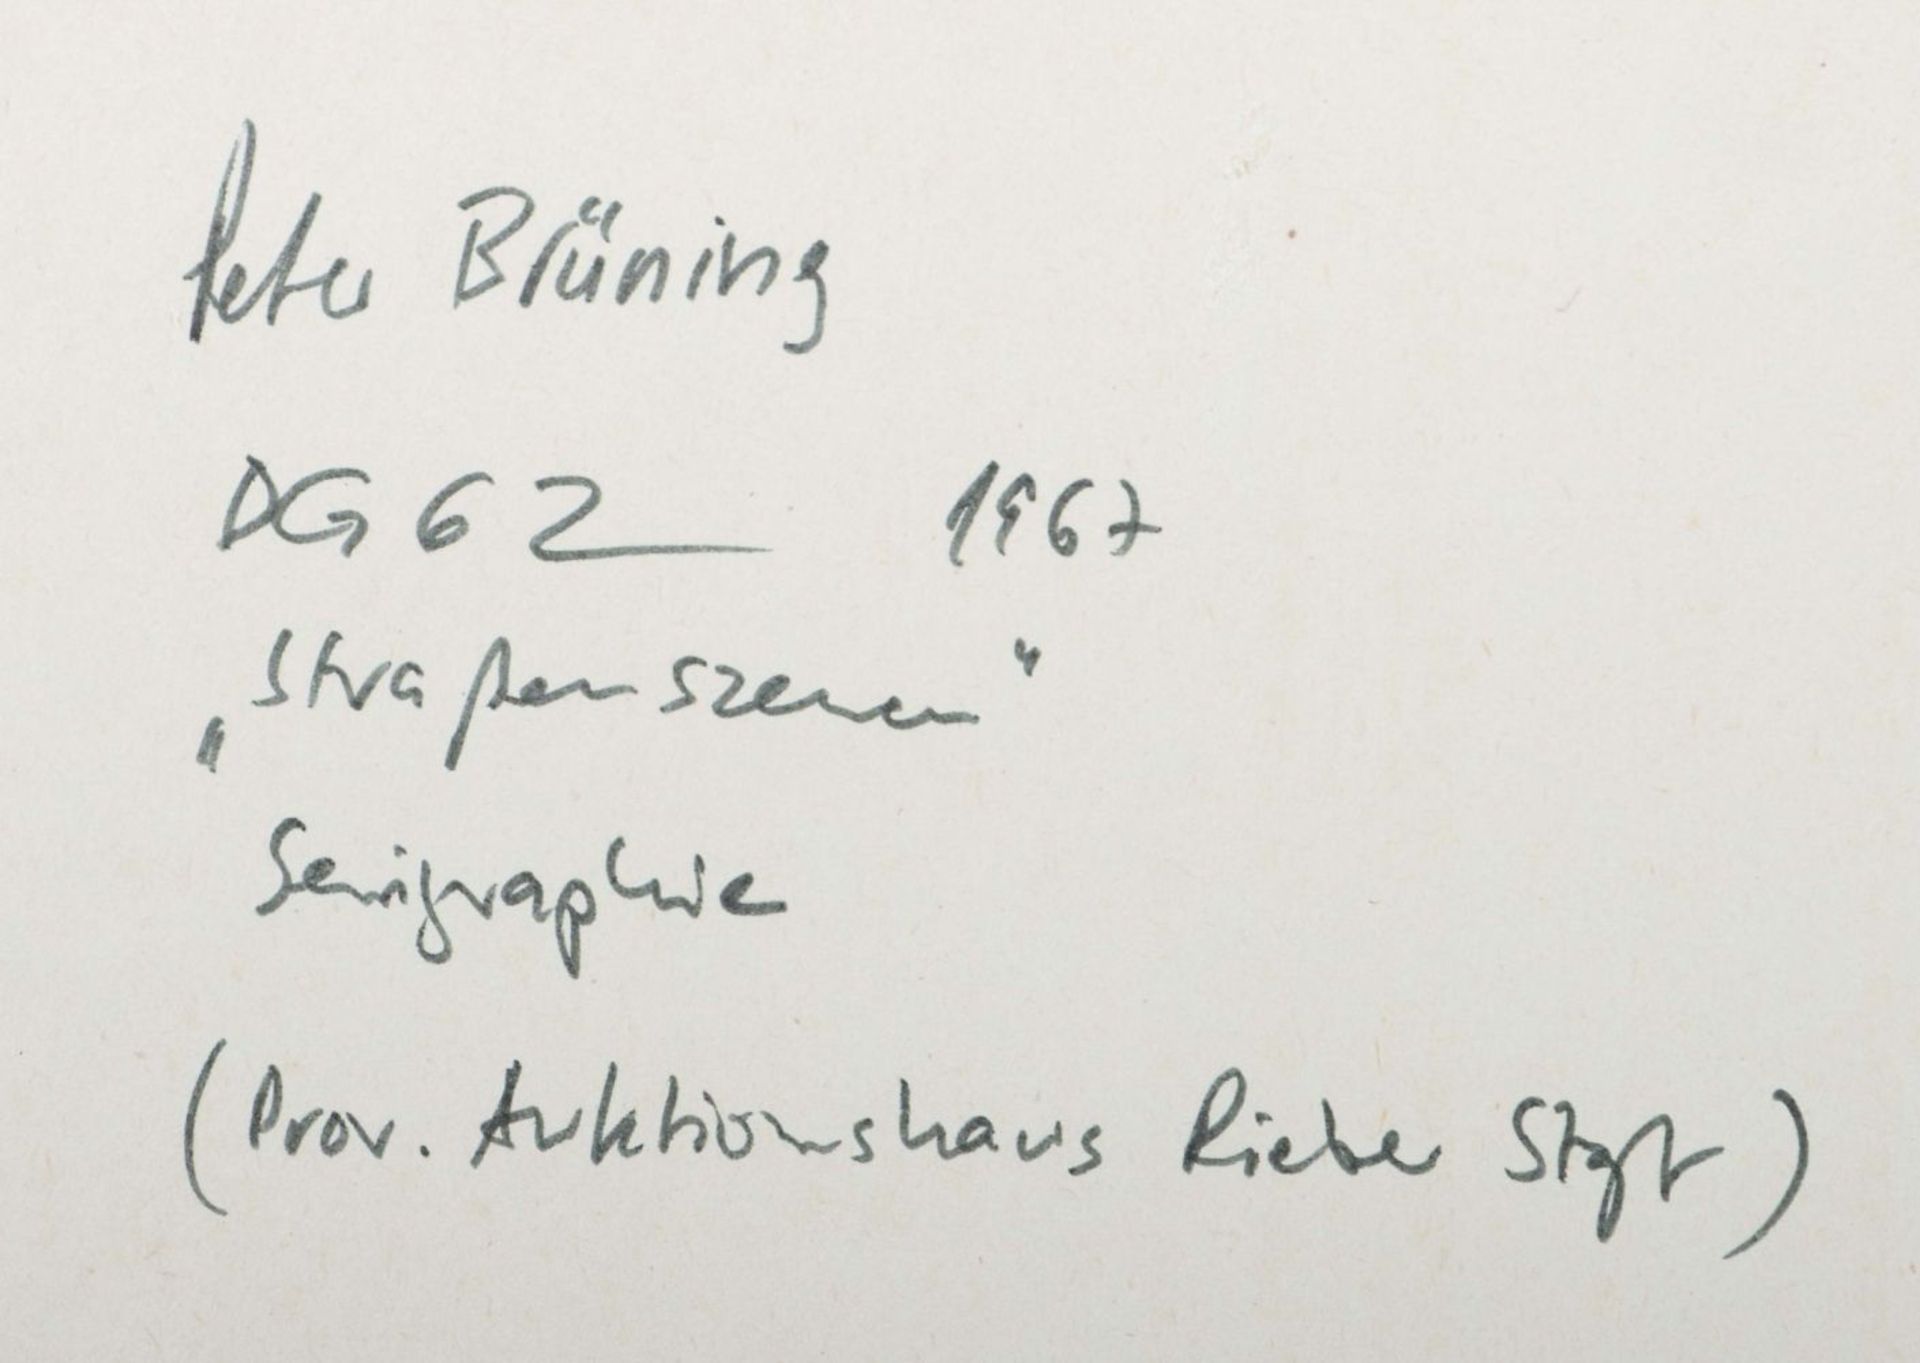 Peter Brüning
DG 62 1967
„Straßenszenen“
Serigraphie
(Prov. Auktionshaus Rieber Stgt)